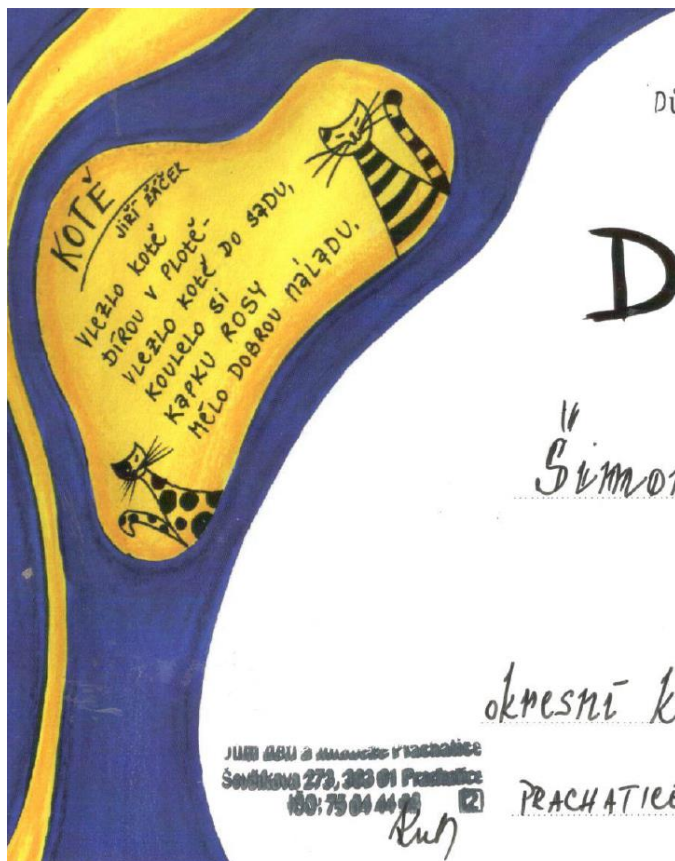 KOTĚ
JIŘÍ ŽÁČEK
VLEZLO KOTĚ
DÍROU V PLOTĚ-
VLEZLO KOTĚ DO SADU,
KOULELO SI
KAPKU ROSY
MĚLO DOBROU NÁLADU.
Dů
D
Šimon
okresní k
a mládeže Prachatice
273, 383 01 Prachatice
IČO: 75
PRACHATICE